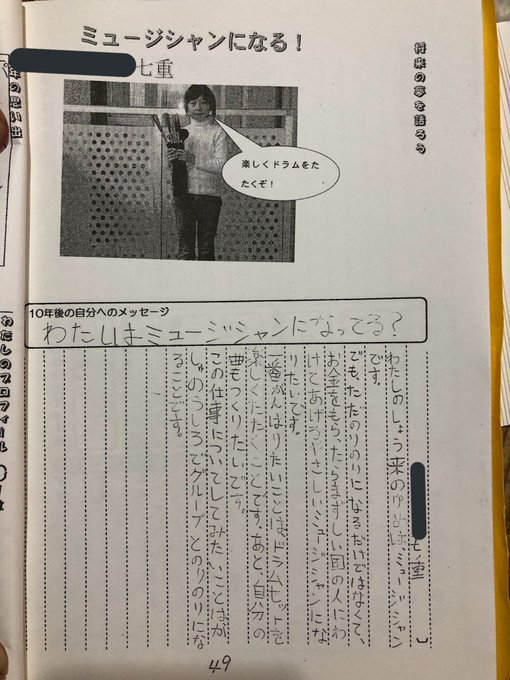 将来の夢を語ろう
ミュージシャンになる!
七重
楽しくドラムをた
たくぞ!
10年後の自分へのメッセージ
わたしはミュージシャンになってる?
七重
わたしのしょう来のゆめは、ミュージシャン
です。
でも、ただのりのりになるだけではなくて、
お金をもらったらまずしい国の人にわ
けてあげるやさしいミュージシャンにな
りたいです。
一番がんばりたいことは、ドラムセットを
楽しくたたくことです。あと、自分の
曲もつくりたいです。
この仕事についてしてみたいことはか
しゅのうしろでグループとのりのりにな
ることです。
49
年の思い出
わたしのプロフィール